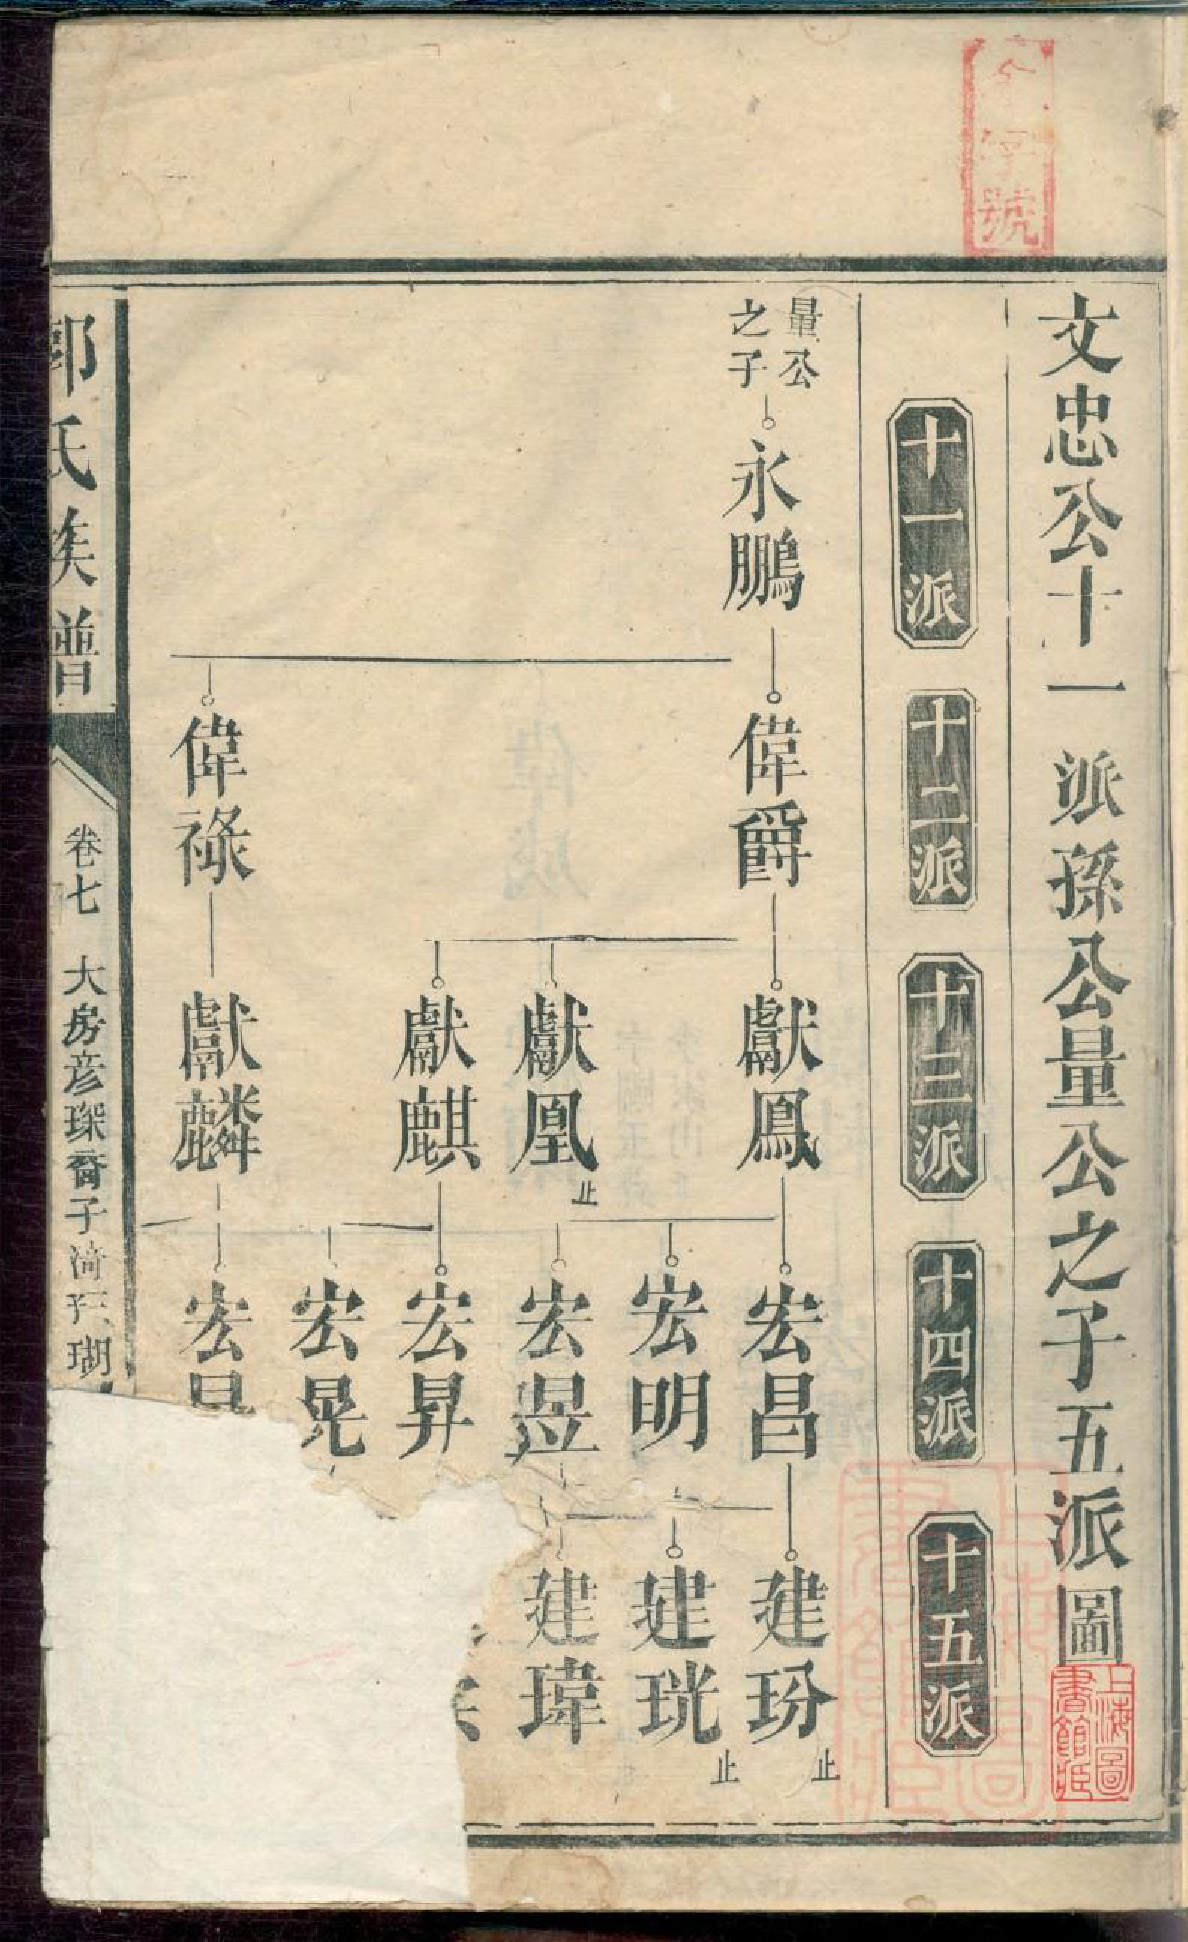 字號
文忠公十一派孫公量公之子五派圖
上海圖書館藏
十一派
十二派
十三派
十四派
十五派
量公之子
永鵬
偉爵
偉祿
獻鳳
獻凰 止
獻麒
獻麟
宏昌
宏明
宏昱
宏昇
宏晃
宏
建玢 止
建珖 止
建瑋
郭氏族譜
卷七 大房彦琛裔子漪 瑚